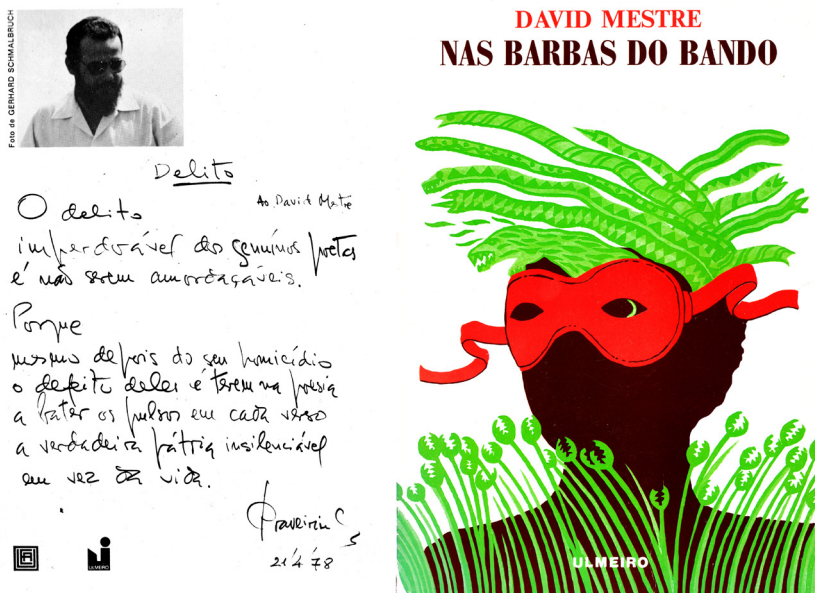 Foto de GERHARD SCHMALBRUCH
Delito
Ao David Mestre
O delito
imperdoável dos genuínos poetas
é não serem amordaçáveis.
Porque
mesmo depois do seu homicídio
o defeito deles é terem na poesia
a bater os pulsos em cada verso
a verdadeira pátria insilenciável
em vez da vida.
21'4'78
ULMEIRO
DAVID MESTRE
NAS BARBAS DO BANDO
ULMEIRO